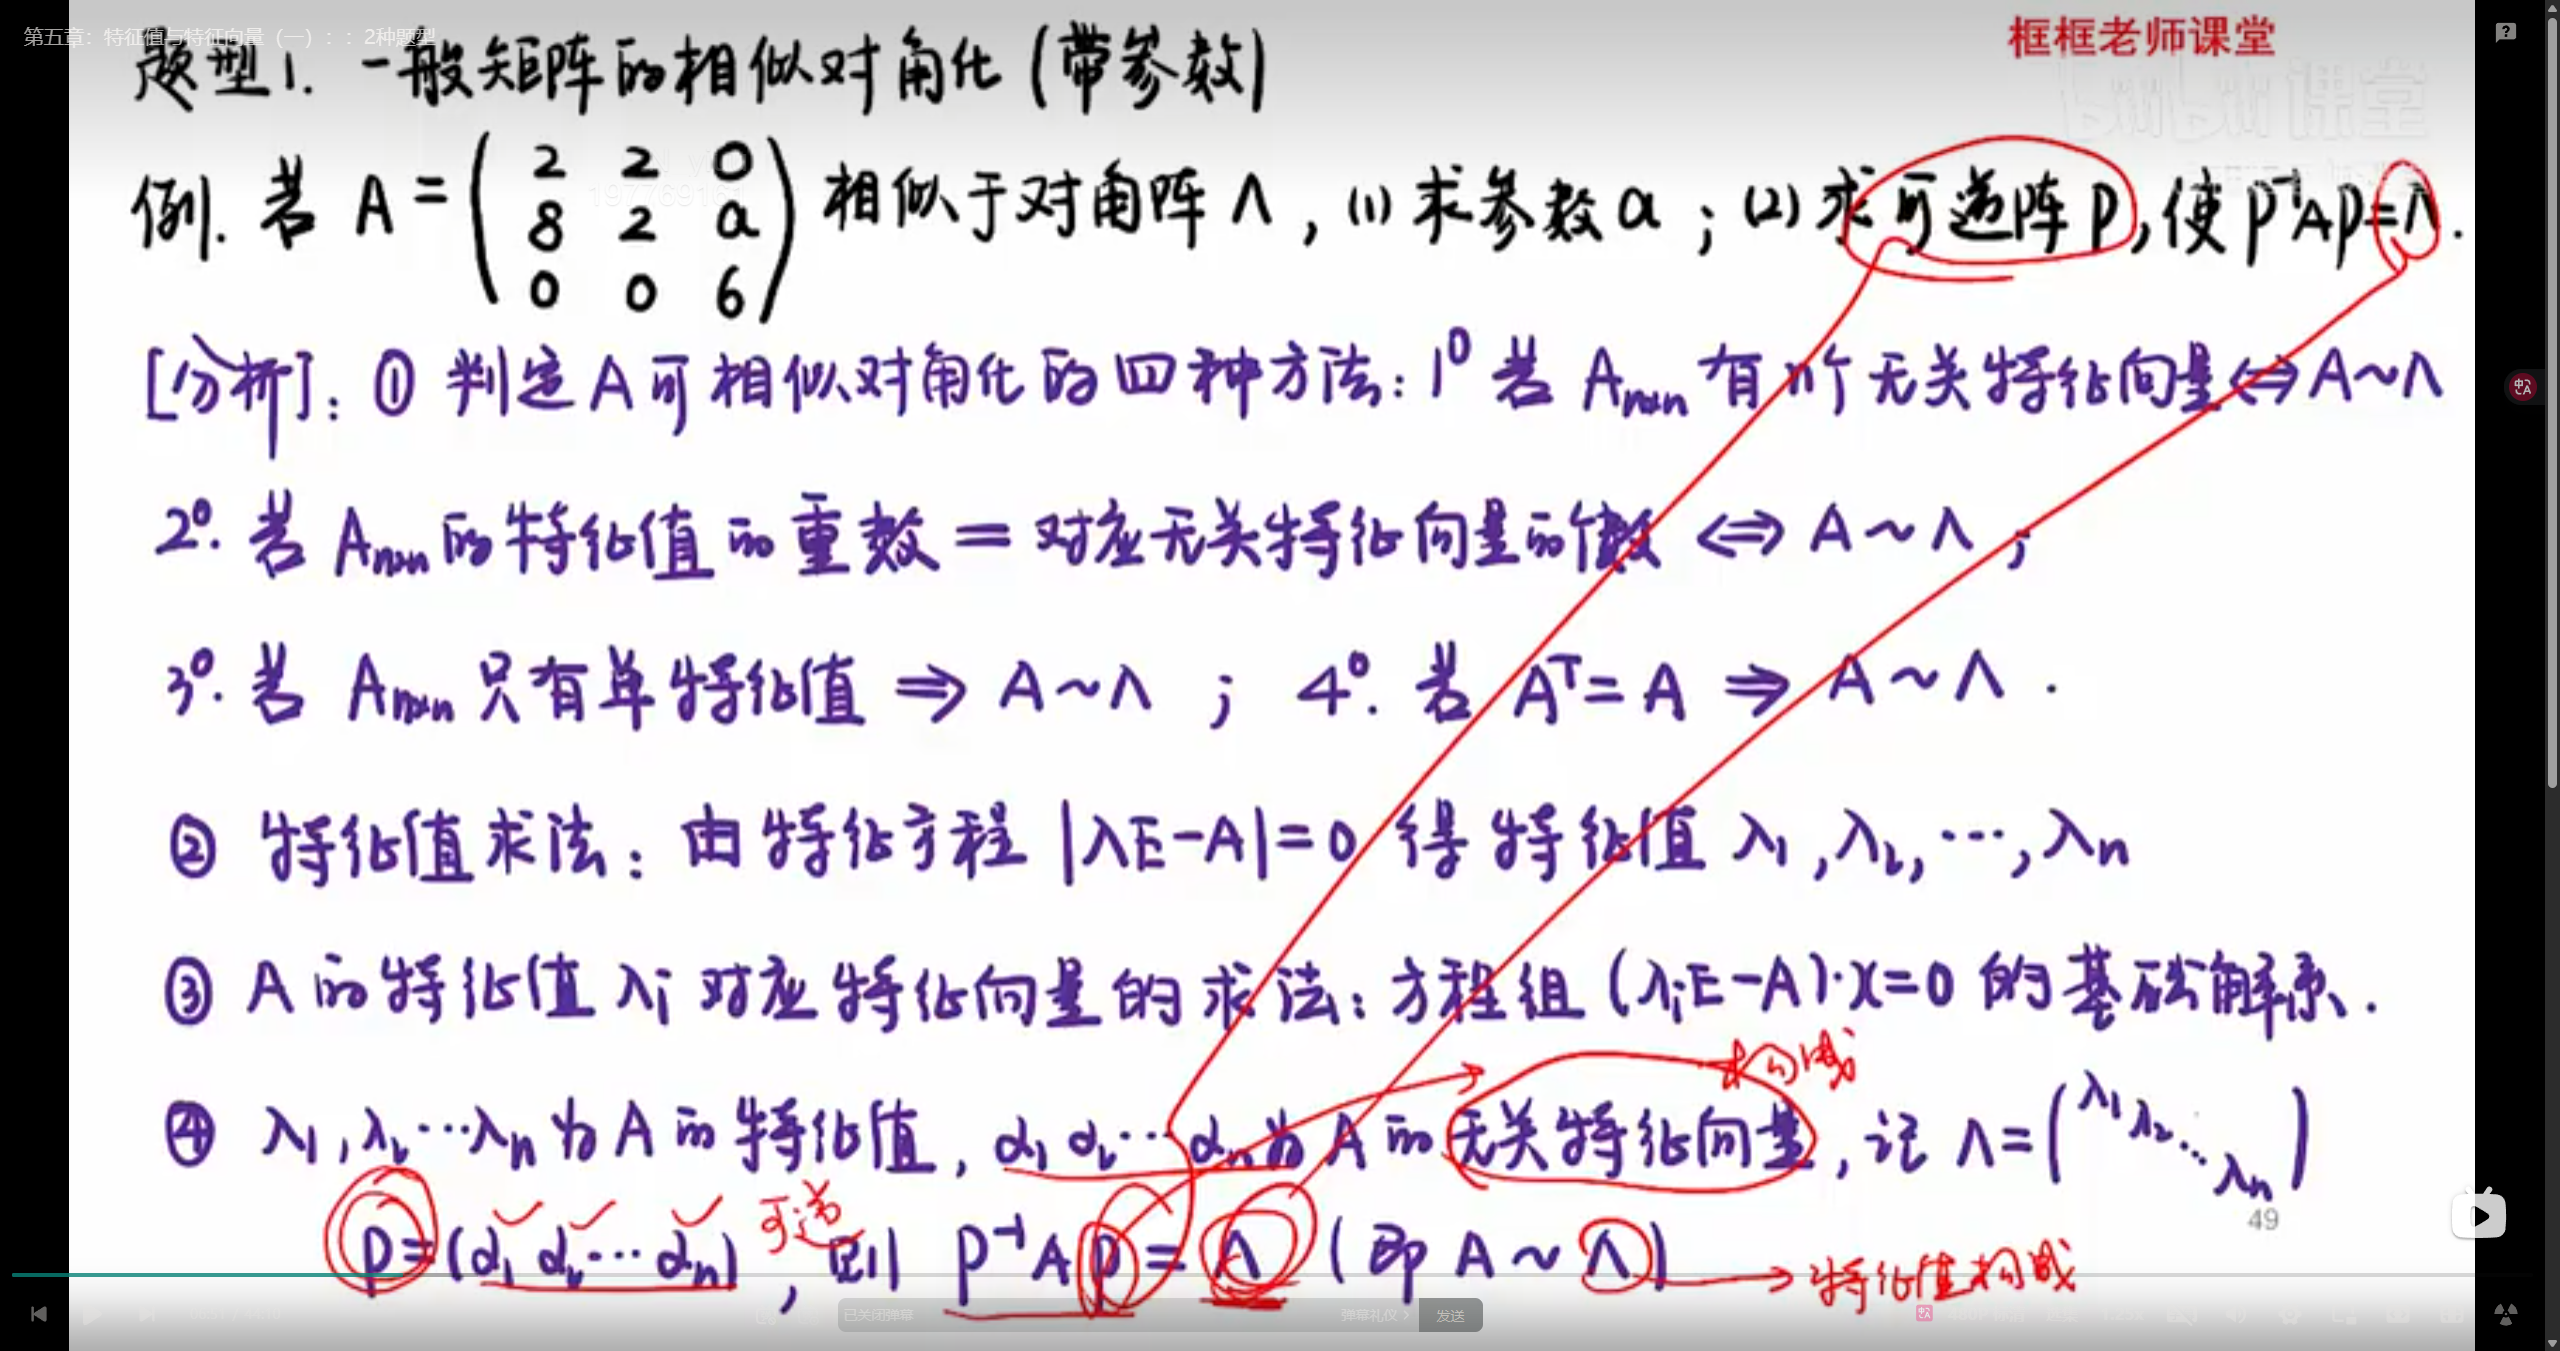 第五章：特征值与特征向量（一）：：2种题型
框框老师课堂
题型1. 一般矩阵的相似对角化(带参数)
例. 若 A = ( 2 2 0
8 2 a
0 0 6 ) 相似于对角阵 Λ , (1) 求参数 a ; (2) 求可逆阵 P, 使 P⁻¹AP=Λ.
[分析]: ① 判定A可相似对角化的四种方法: 1⁰ 若 Aₙₓₙ 有n个无关特征向量⇔A~Λ
2⁰. 若 Aₙₓₙ的特征值的重数 = 对应无关特征向量的个数 ⇔ A ~ Λ ;
3⁰. 若 Aₙₓₙ 只有单特征值 ⇒ A ~ Λ ; 4⁰. 若 Aᵀ = A ⇒ A ~ Λ .
② 特征值求法: 由特征方程 |λE-A|=0 得特征值 λ₁,λ₂,…,λₙ
③ A的特征值 λi 对应特征向量的求法: 方程组 (λiE-A)·x=0 的基础解系.
构成
④ λ₁,λ₂…λₙ为A的特征值, α₁ α₂…αₙ为A的无关特征向量, 记 Λ=( λ₁ λ₂ ⋱ λₙ )
P=(α₁ α₂…αₙ) 可逆, 则 P⁻¹AP = Λ (即 A ~ Λ) → 特征值构成
49
已关闭弹幕 弹幕礼仪 > 发送